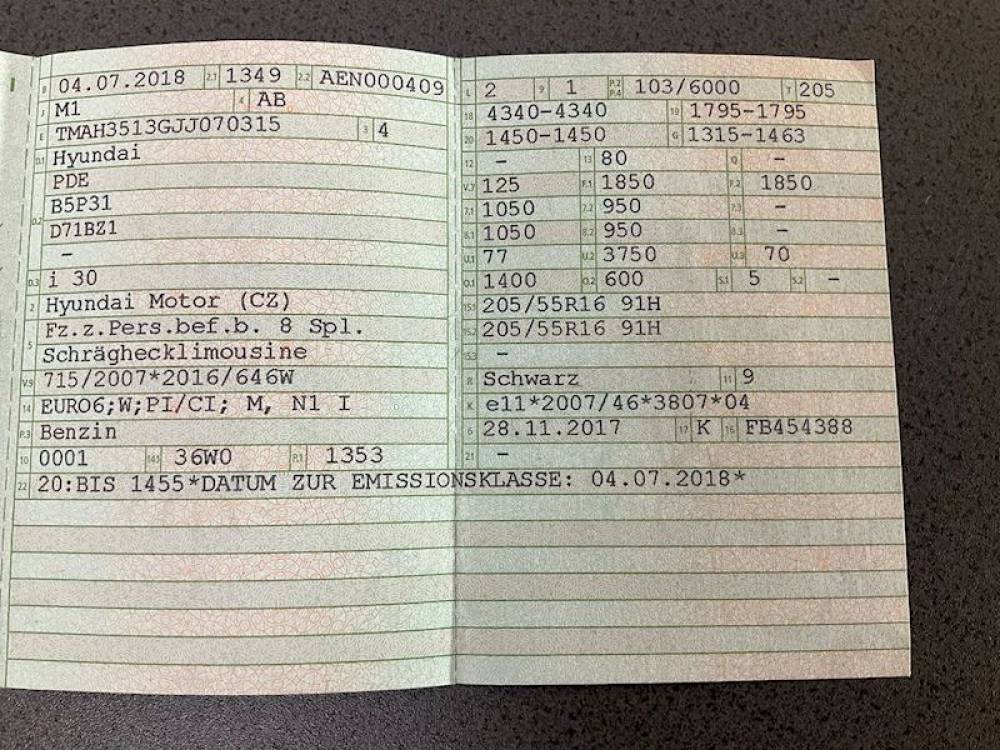 B 04.07.2018 2.1 1349 2.2 AEN000409
J M1 4 AB
E TMAH3513GJJ070315 3 4
D.1 Hyundai
D.2 PDE
B5P31
D71BZ1
–
D.3 i 30
2 Hyundai Motor (CZ)
5 Fz.z.Pers.bef.b. 8 Spl.
Schräghecklimousine
V.9 715/2007*2016/646W
14 EURO6;W;PI/CI; M, N1 I
P.3 Benzin
10 0001 14.1 36W0 P.1 1353
22 20:BIS 1455*DATUM ZUR EMISSIONSKLASSE: 04.07.2018*
L 2 9 1 P.2 P.4 103/6000 T 205
18 4340–4340 19 1795–1795
20 1450–1450 G 1315–1463
12 – 13 80 Q –
V.7 125 F.1 1850 F.2 1850
7.1 1050 7.2 950 7.3 –
8.1 1050 8.2 950 8.3 –
U.1 77 U.2 3750 U.3 70
O.1 1400 O.2 600 S.1 5 S.2 –
15.1 205/55R16 91H
15.2 205/55R16 91H
15.3 –
R Schwarz 11 9
K e11*2007/46*3807*04
6 28.11.2017 17 K 16 FB454388
21 –